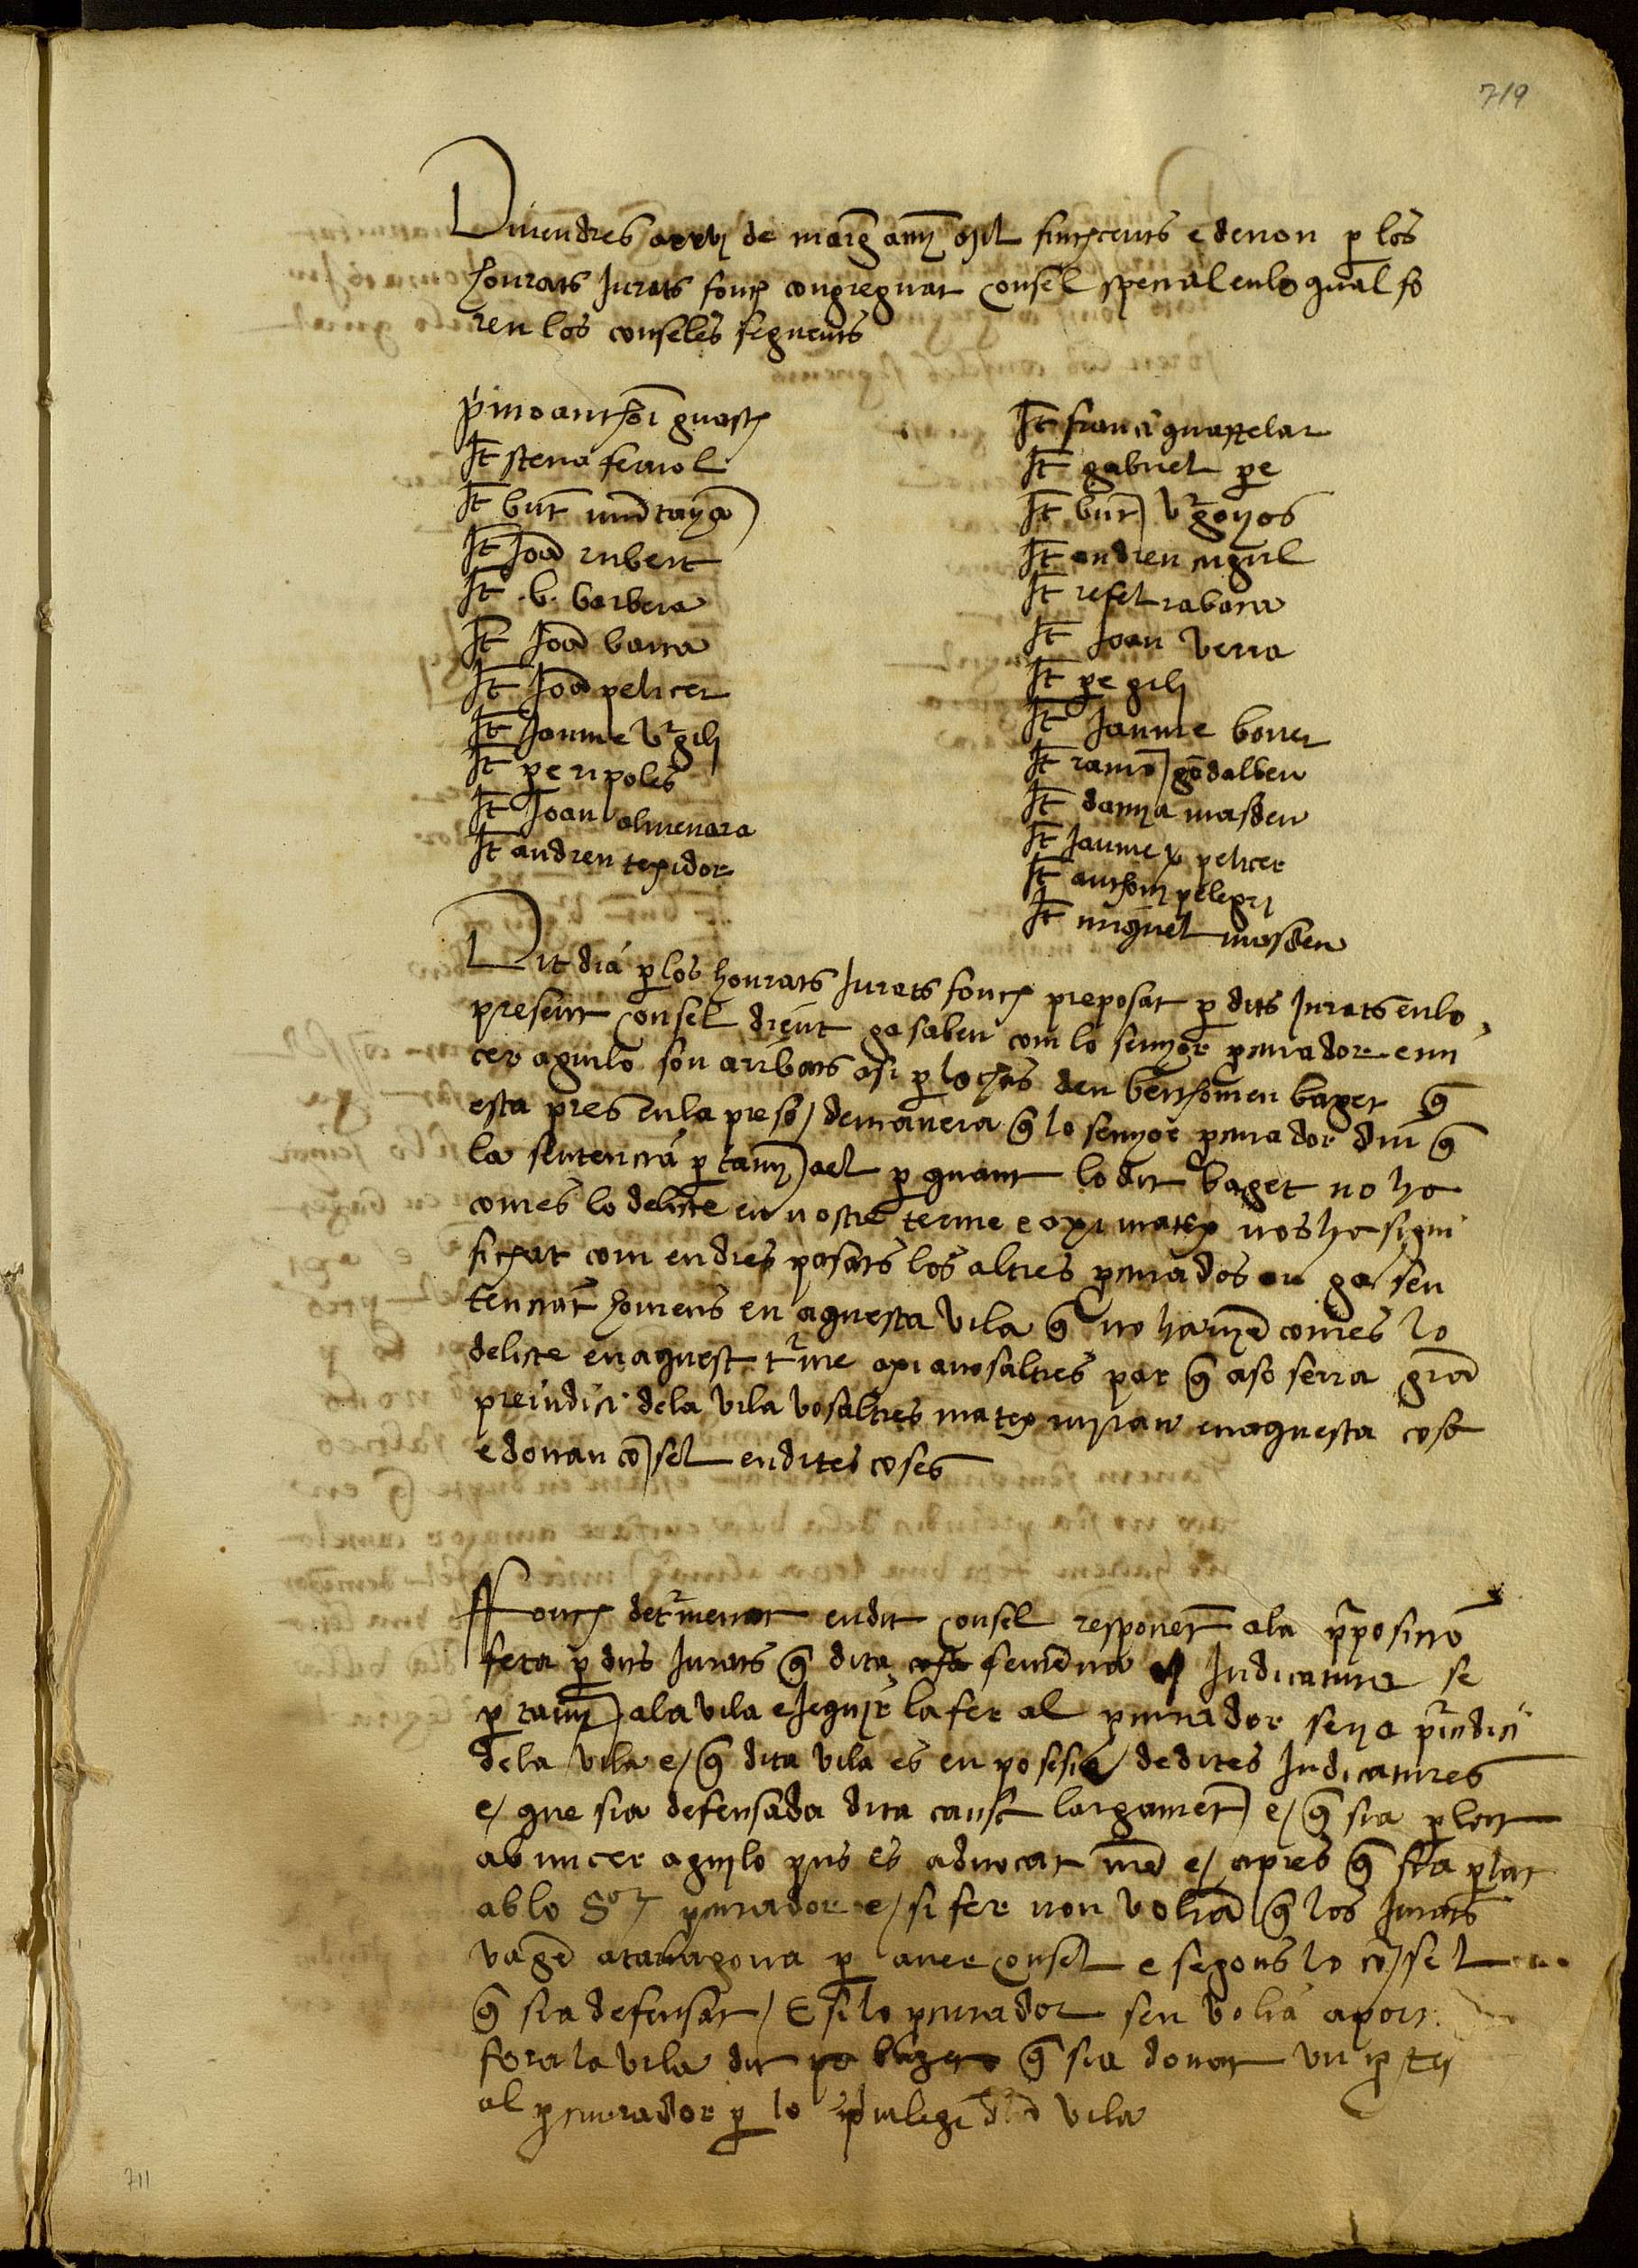 719
Divendres xxvj de març any mjl sinchcents e denou p los
honrats Jurats fonch congreguat consel spetial en lo qual fo
ren los conseles seguents
pmo anthoni guasch
It steva ferriol
It bnt muntanya
It Joa rubert
It .b. barbera
It Joa barra
It Joa pelicer
It Jaume vrgili
It pe ripoles
It Joan almenara
It andreu texidor
It franci guapelar
It gabriel pe
It bnt vrgonyos
It andreu cugul
It refel rabasa
It Joan verra
It pe gilj
It Jaume boner
It ramo godalbeu
It damya masdeu
It Jaume pelicer
It anthonj pelegrj
It miguel masdeu
Dit dia p los honrats Jurats fonch preposat p dits Jurats en lo
present consel dient ga saben com lo senyor pcurador e mi
cer aguilo son aribats asi p lo fas den berthomeu baget q
esta pres en la preso / de manera q lo senyor pcurador diu q
la sententia p tany a el p quant lo dit baget no ha
comes lo delicte en nostre terme e axi matex nos ha signi
fichat com en dies pasats los altres pcurados an ga sen
tenciat homens en aquesta vila q no havie comes lo
delicte en aquest trme axi a nosaltres par q aso serra gra
preiudici de la vila vosaltres matex mirau en aquesta cosa
e donau cosel en dites coses
Fonch detrmenat en dit consel responet a la pposicio
feta p dits Jurats q dita Judicatura se
p tany a la vila e jaquir la fer al pcurador seria priudici
de la vila e / q dita vila es en posesio de dites Judicatures
e / que sia defensada dita causa largamet e / q sia plat
ab micer aguilo pus es advocat nre e / apres q sia plat
ab lo Sor pcurador e / si fer non volia q los Jurats
vage a taragona p aver consel e segons lo cosel
q sia defensat / E si lo pcurador sen volia aport
fora la vila dit baget q sia donat un ptest
al pcurador p lo privilegi d la vila
711